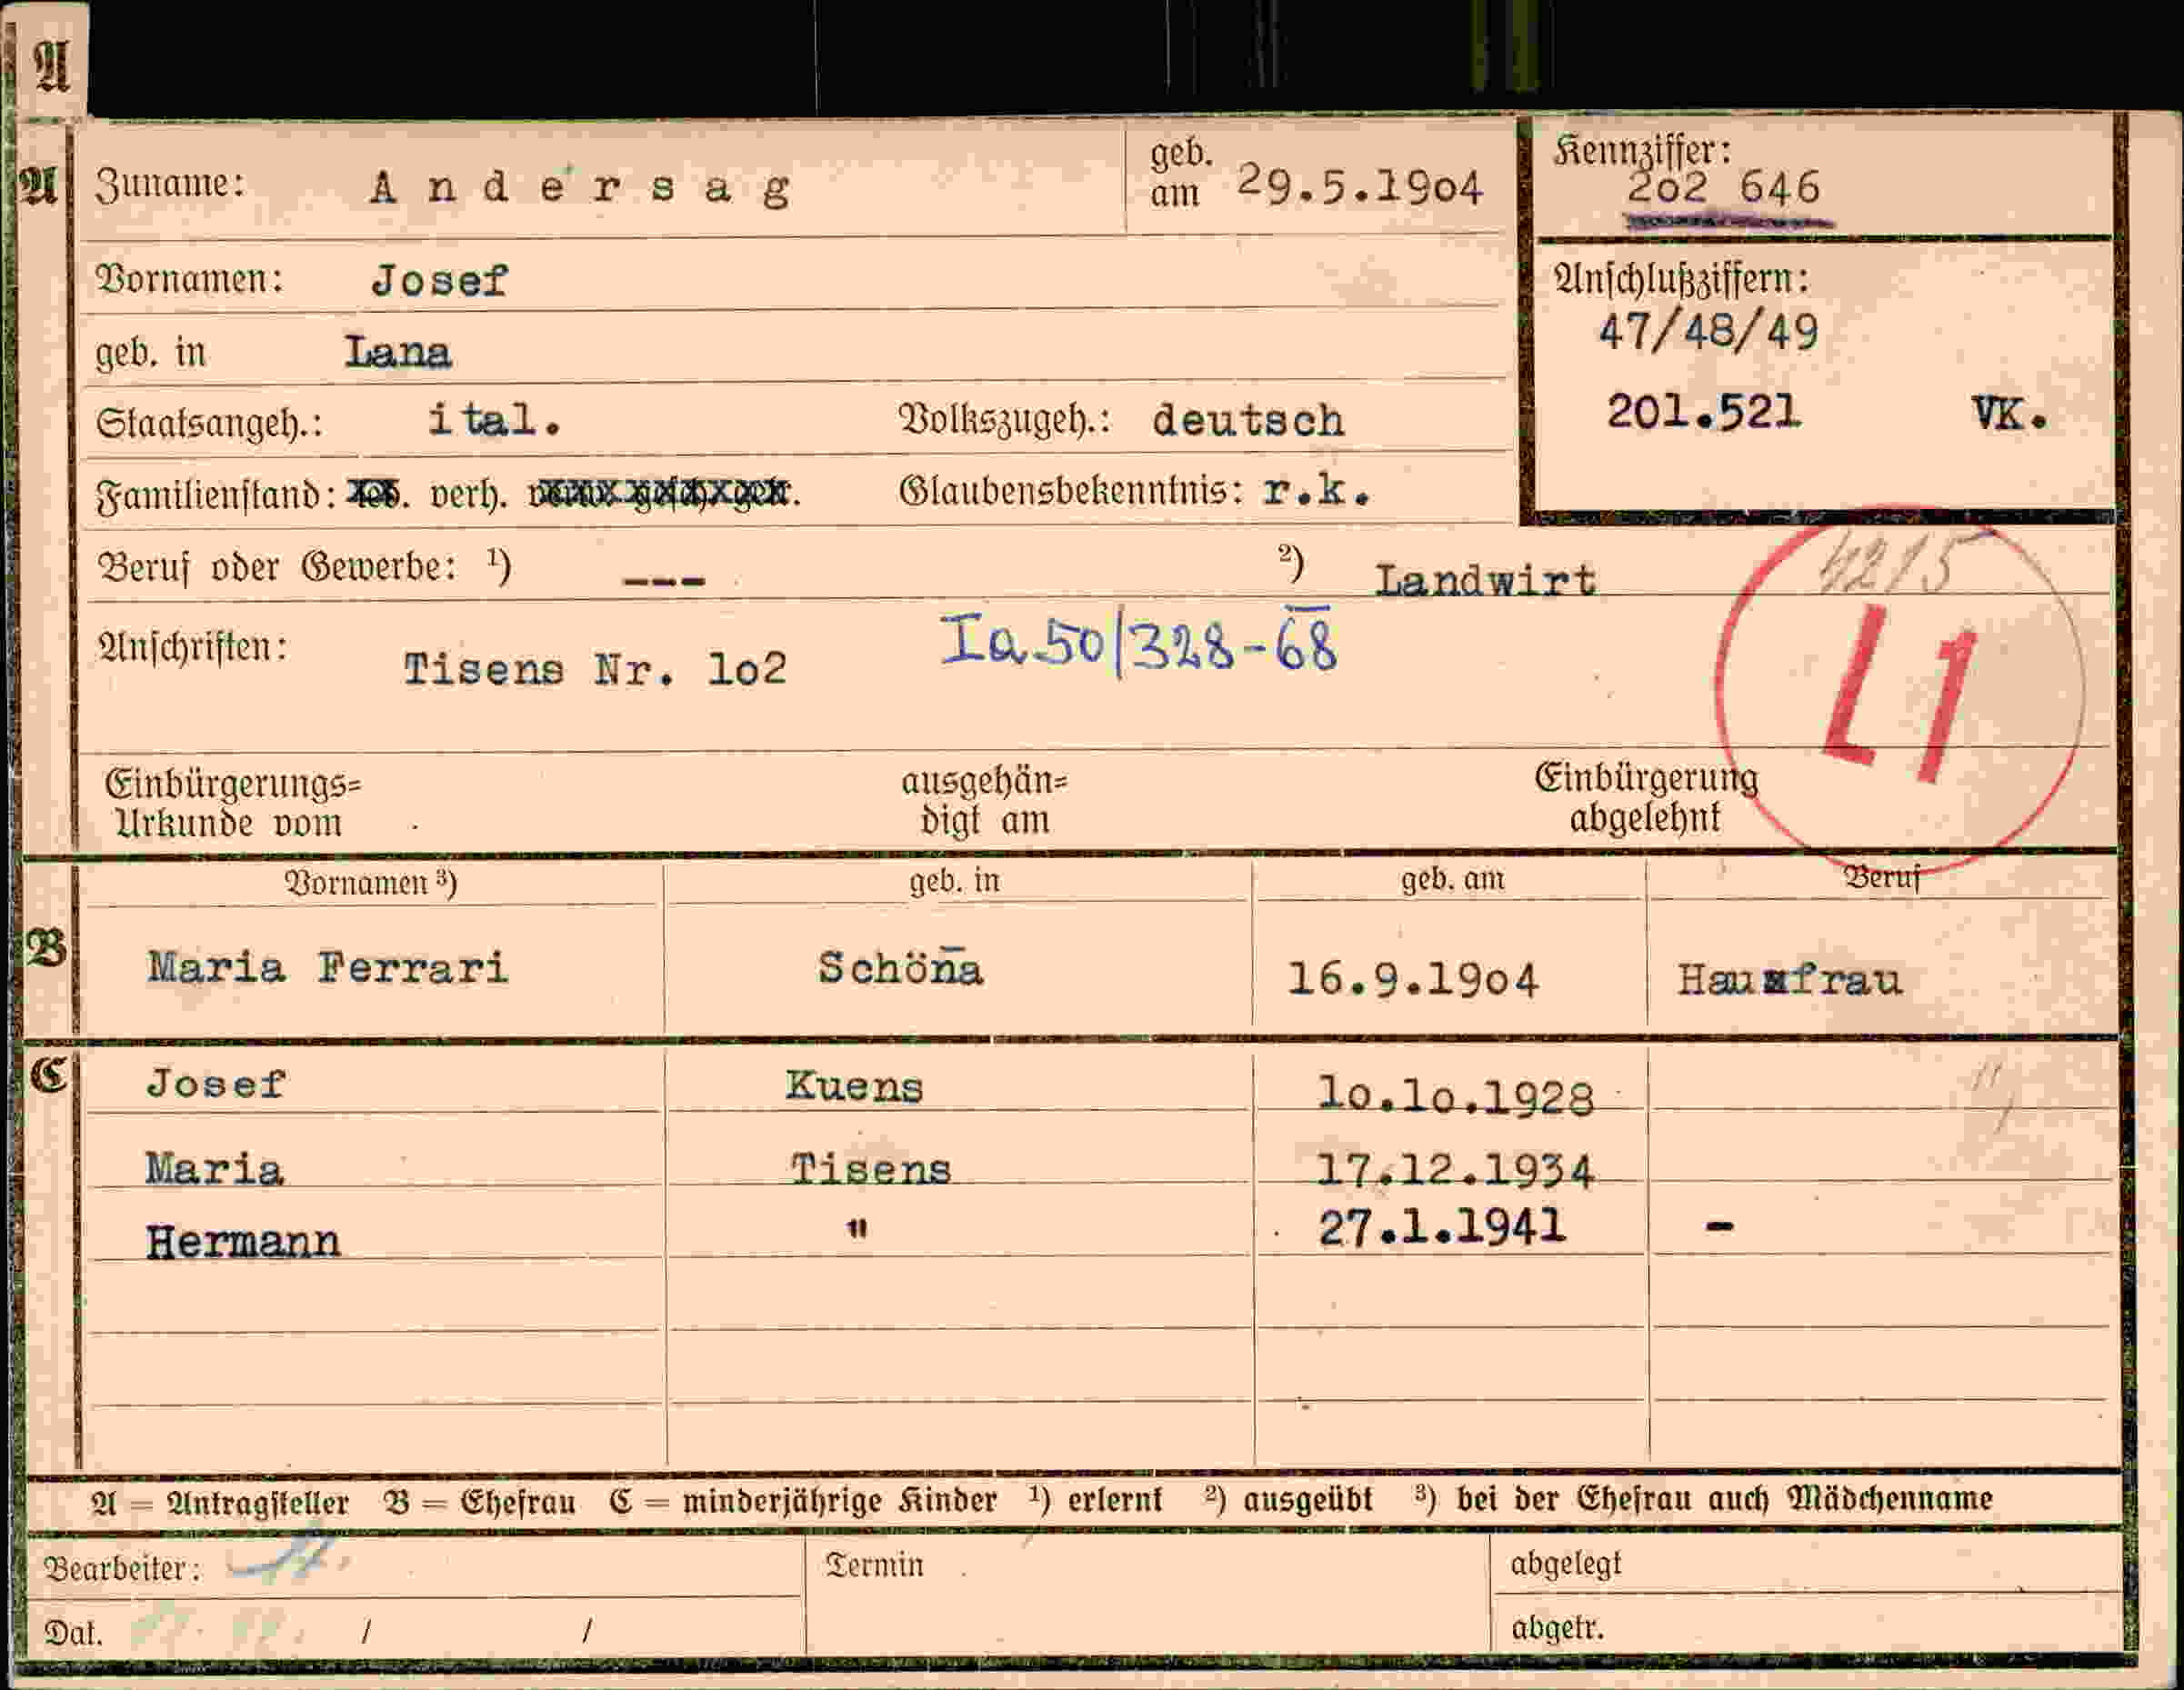 A
A Zuname: Andersag geb. am 29.5.19o4 Kennziffer: 2o2 646
Vornamen: Josef Anschlußziffern:
47/48/49
geb. in Lana
Staatsangeh.: ital. Volkszugeh.: deutsch 201.521 VK.
Familienstand: verh. Glaubensbekenntnis: r.k.
Beruf oder Gewerbe: ¹) --- ²) Landwirt
4215
Anschriften: Tisens Nr. lo2 Ia 50/328-68
L1
Einbürgerungs= ausgehän= Einbürgerung
Urkunde vom digt am abgelehnt
Vornamen ³) geb. in geb. am Beruf
B Maria Ferrari Schöna 16.9.19o4 Hausfrau
C Josef Kuens lo.lo.1928
Maria Tisens 17.12.1934
Hermann " 27.1.1941 -
A = Antragsteller B = Ehefrau C = minderjährige Kinder ¹) erlernt ²) ausgeübt ³) bei der Ehefrau auch Mädchenname
Bearbeiter: Termin abgelegt
Dat. / / abgetr.